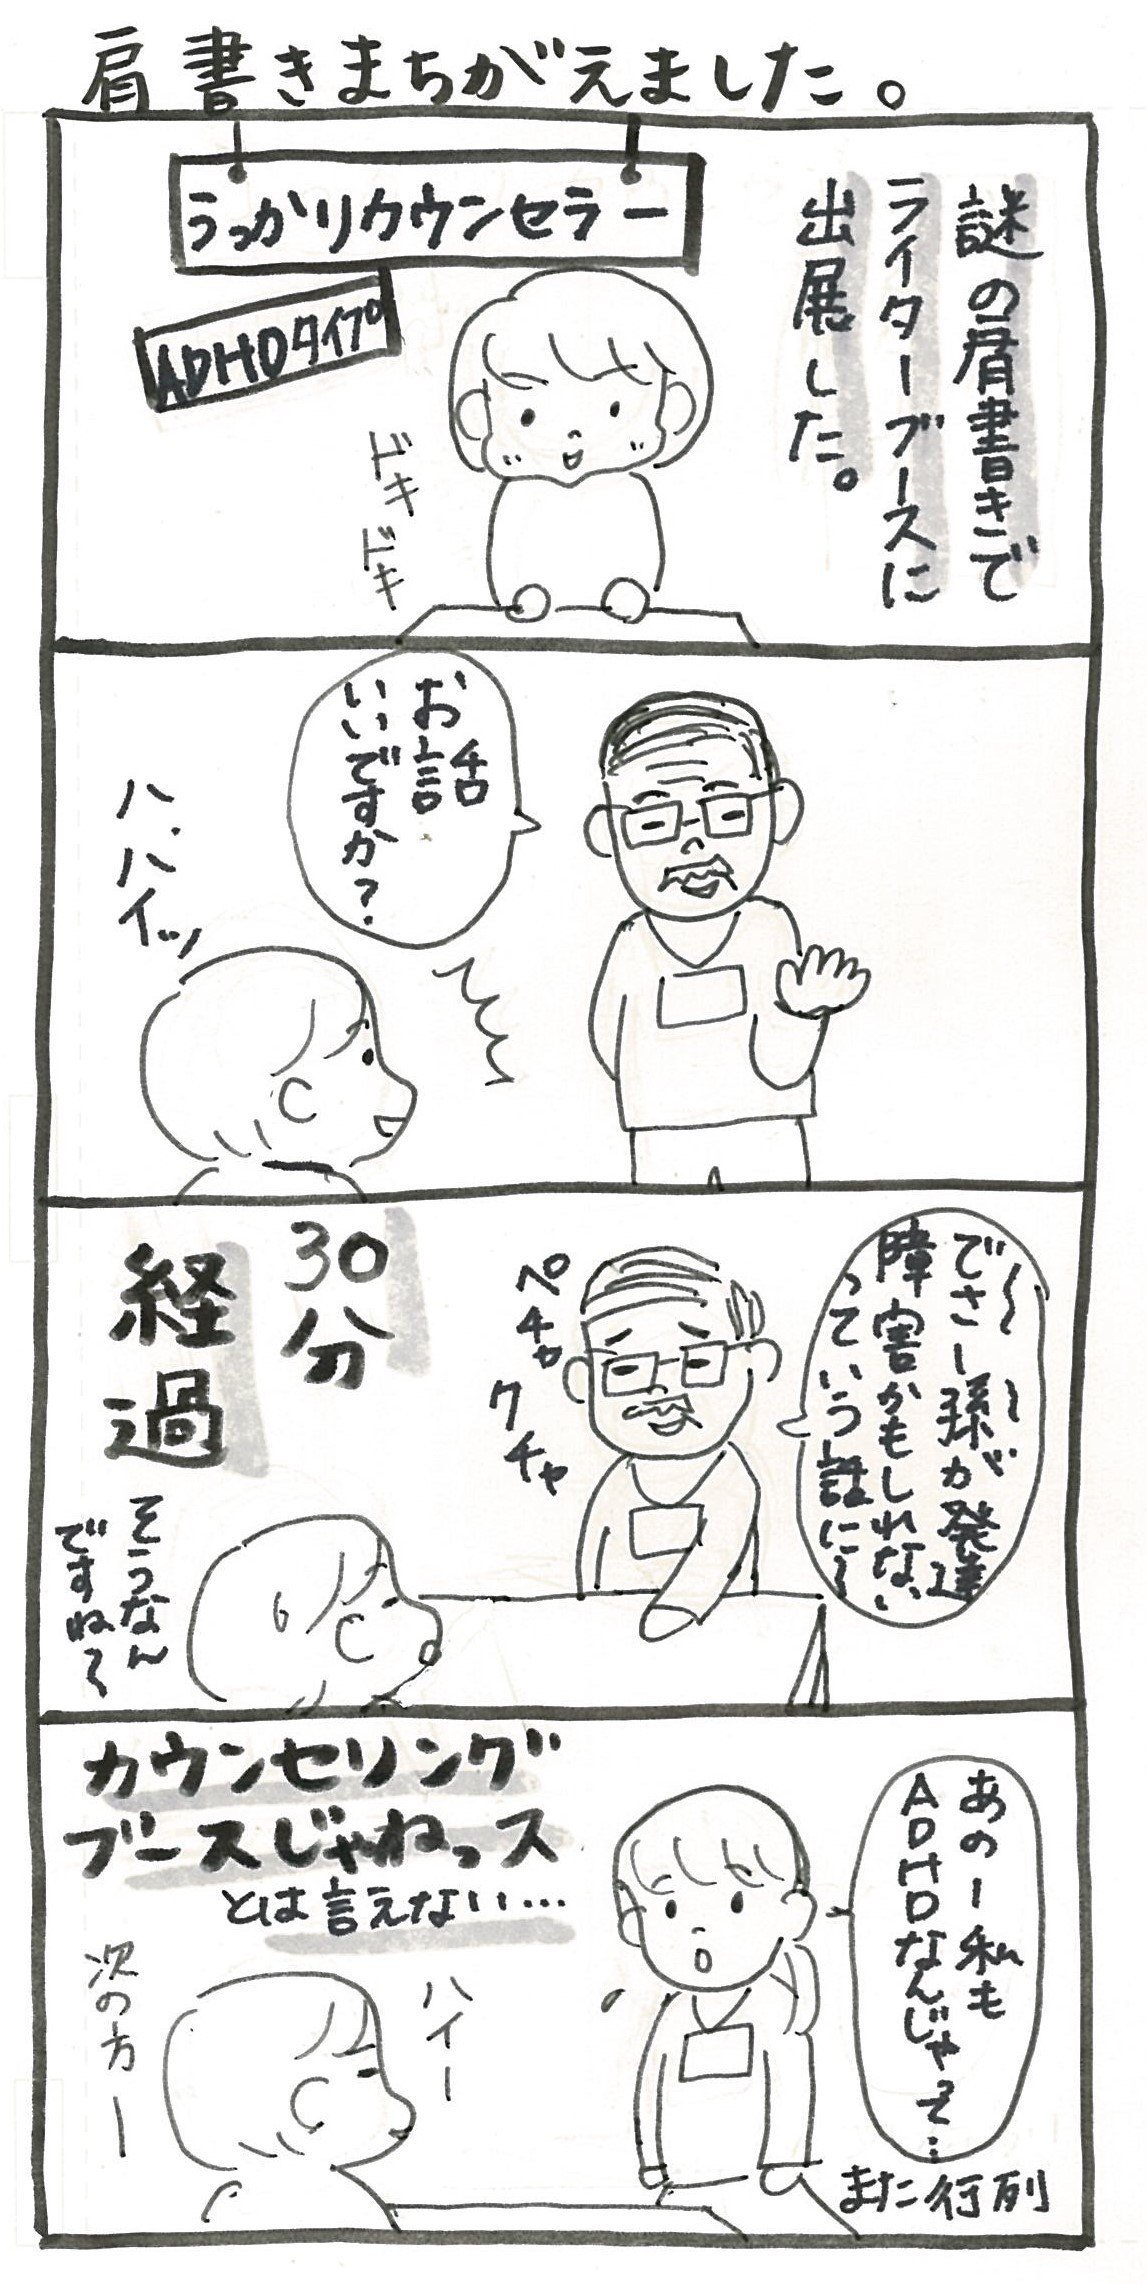 肩書きまちがえました。
謎の肩書きで
ライターブースに
出展した。
うっかりカウンセラー
ADHDタイプ
ドキ
ドキ
お話
いいですか?
ハ、ハイッ
でさー孫が発達
障害かもしれない
っていう話に〜
ペチャ
クチャ
30分
経過
そうなん
ですね〜
あのー私も
ADHDなんじゃって…
カウンセリング
ブースじゃねっス
とは言えない…
ハイー
次の方ー
また行列